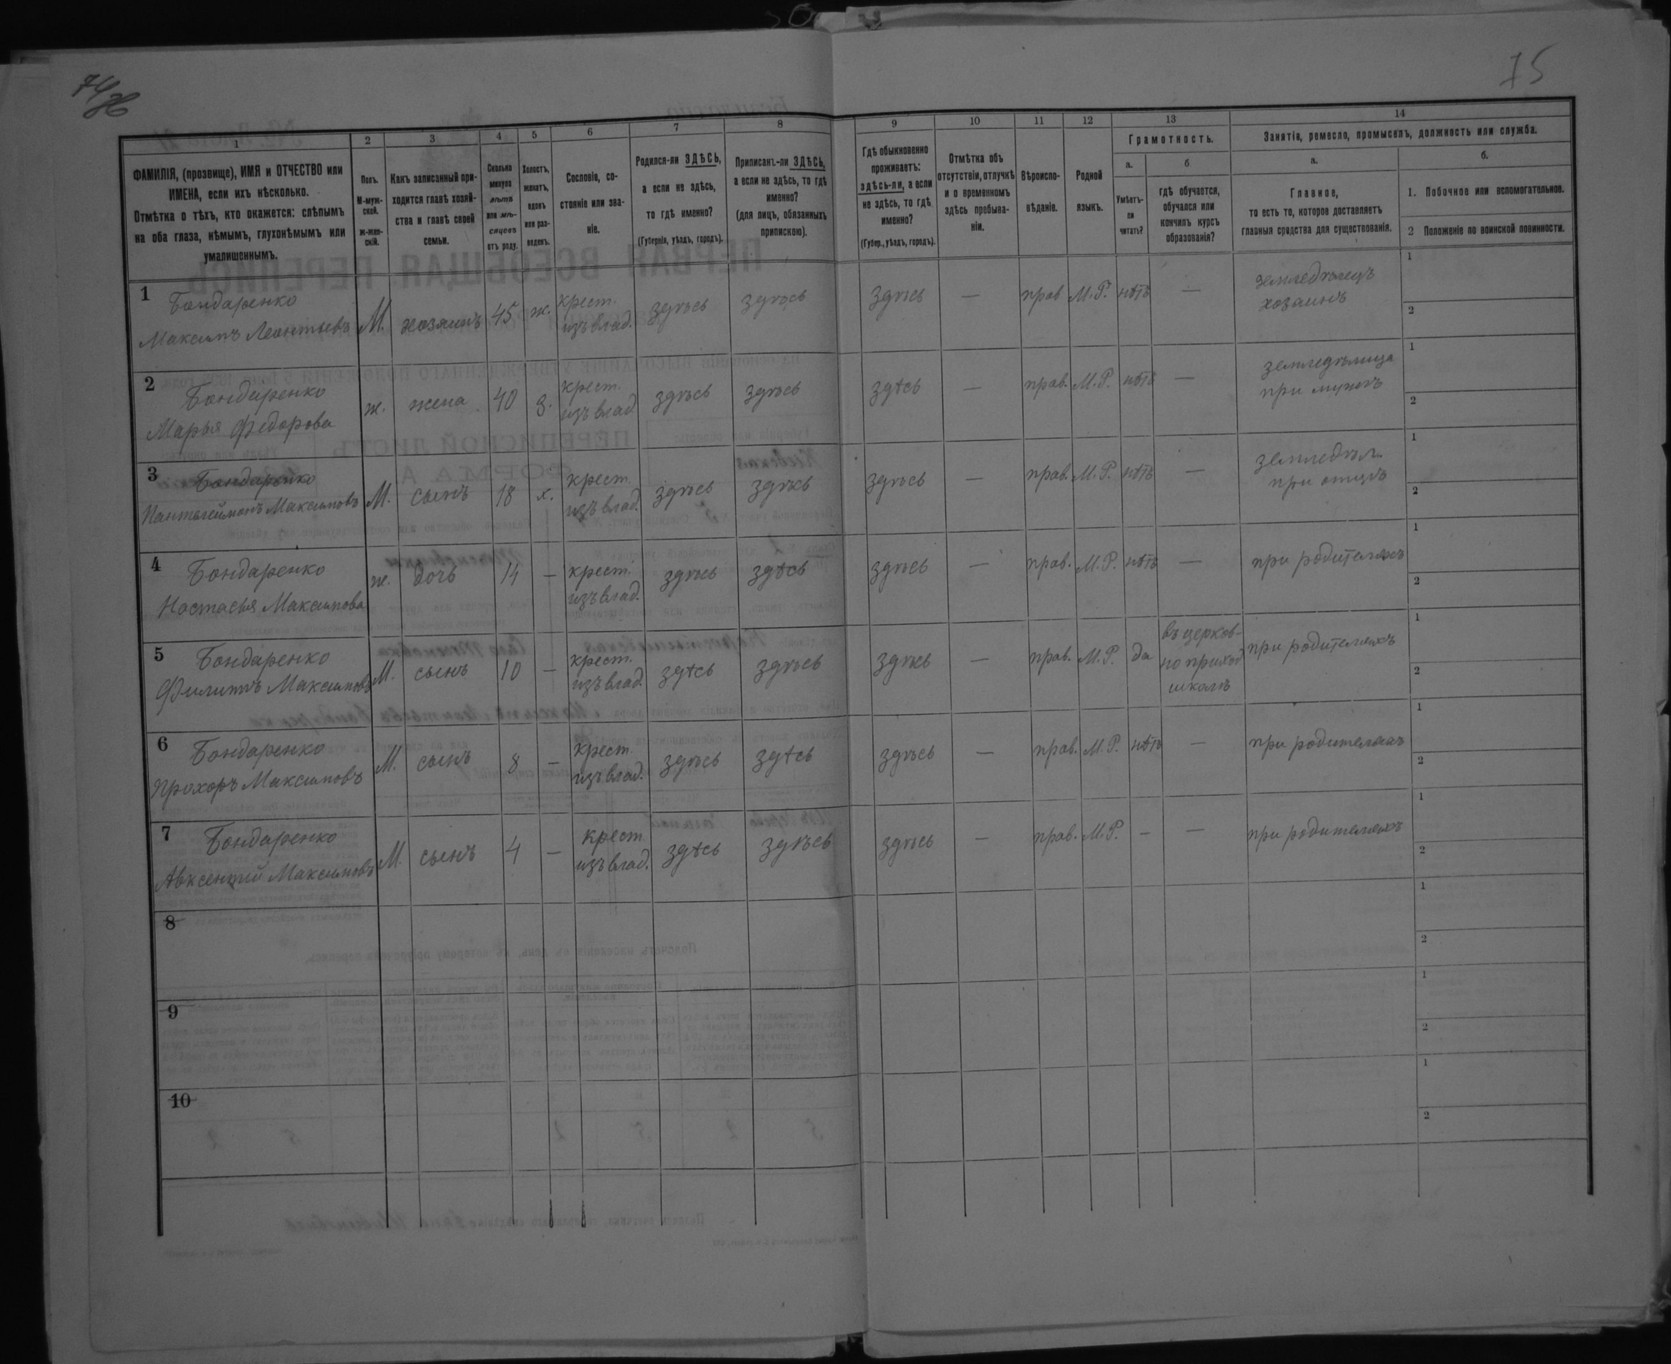 74
75
1
2
3
4
5
6
7
8
9
10
11
12
13
14
ФАМИЛІЯ, (прозвище), ИМЯ и ОТЧЕСТВО или
ИМЕНА, если ихъ нѣсколько.
Отмѣтка о тѣхъ, кто окажется: слѣпымъ
на оба глаза, нѣмымъ, глухонѣмымъ или
умалишеннымъ.
Полъ.
М-муж-
ской.
ж-жен-
скій.
Какъ записанный при-
ходится главѣ хозяй-
ства и главѣ своей
семьи.
Сколько
минуло
лѣтъ
или мѣ-
сяцевъ
отъ роду.
Холостъ,
женатъ,
вдовъ
или раз-
веденъ.
Сословіе, со-
стояніе или зва-
ніе.
Родился-ли ЗДѢСЬ,
а если не здѣсь,
то гдѣ именно?
(Губернія, уѣздъ, городъ).
Приписанъ-ли ЗДѢСЬ,
а если не здѣсь, то гдѣ
именно?
(для лицъ, обязанныхъ
припискою).
Гдѣ обыкновенно
проживаетъ:
здѣсь-ли, а если
не здѣсь, то гдѣ
именно?
(Губер., уѣздъ, городъ).
Отмѣтка объ
отсутствіи, отлучкѣ
и о временномъ
здѣсь пребыва-
ніи.
Вѣроиспо-
вѣданіе.
Родной
языкъ.
Грамотность.
а.
Умѣетъ-
ли
читать?
б
гдѣ обучается,
обучался или
кончилъ курсъ
образованія?
Занятія, ремесло, промыселъ, должность или служба.
а.
Главное,
то есть то, которое доставляетъ
главныя средства для существованія.
б.
1. Побочное или вспомогательное.
2 Положеніе по воинской повинности.
1 Бондаренко
Максимъ Леонтьевъ М. хозяинъ 45 ж. крест. изъ влад. здѣсь здѣсь здѣсь — прав М.Р. нѣтъ — земледѣлецъ хозяинъ 1 2
2 Бондаренко
Марья Федорова ж. жена 40 з. крест. изъ влад здѣсь здѣсь здѣсь — прав. М.Р. нѣтъ — земледѣлица при мужѣ 1 2
3 Бондаренко
Пантелеймонъ Максимовъ М. сынъ 18 х. крест. изъ влад. здѣсь здѣсь здѣсь — прав. М.Р. нѣтъ — земледѣл. при отцѣ 1 2
4 Бондаренко
Настасья Максимова ж. дочь 14 — крест. изъ влад. здѣсь здѣсь здѣсь — прав. М.Р. нѣтъ — при родителяхъ 1 2
5 Бондаренко
Филиппъ Максимовъ М. сынъ 10 — крест. изъ влад здѣсь здѣсь здѣсь — прав. М.Р. да въ церков-но приход школѣ при родителяхъ 1 2
6 Бондаренко
Прохоръ Максимовъ М. сынъ 8 — крест. изъ влад. здѣсь здѣсь здѣсь — прав. М.Р. нѣтъ — при родителяхъ 1 2
7 Бондаренко
Авксентій Максимовъ М сынъ 4 — крест. изъ влад. здѣсь здѣсь здѣсь — прав. М.Р. – — при родителяхъ 1 2
8 1 2
9 1 2
10 1 2